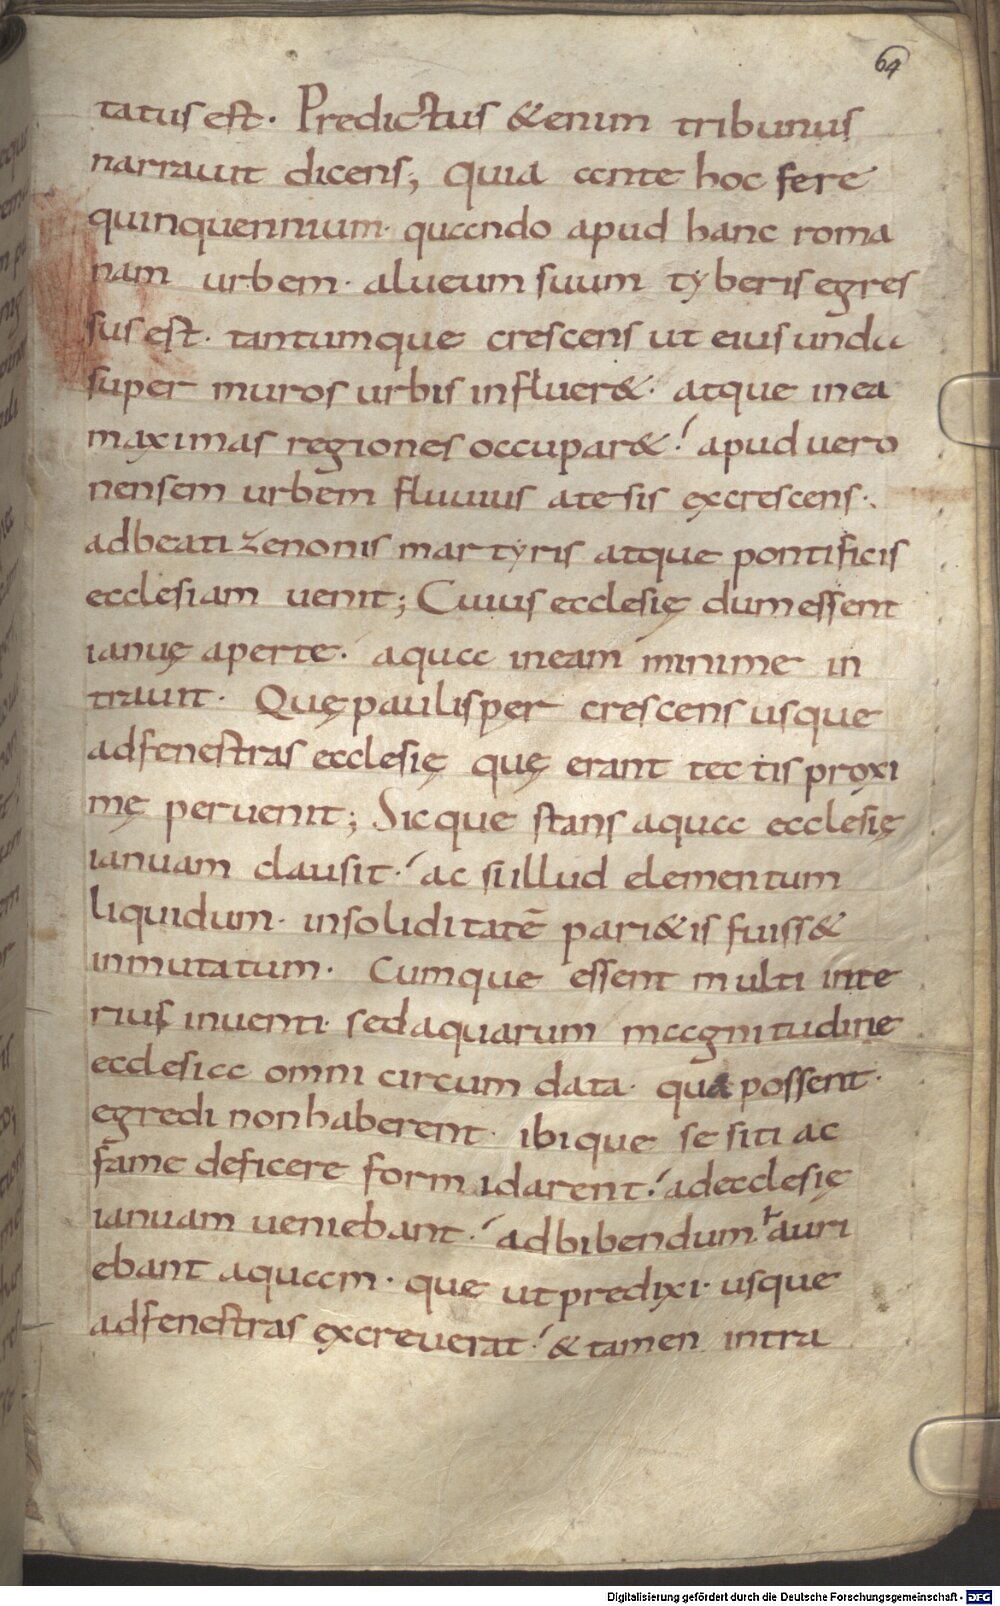 64
tatus est. Predictus &enim tribunus
narrauit dicens; quia ante hoc fere
quinquennium· quando apud hanc roma
nam urbem· alueum suum tyberis egres
sus est· tantumque crescens ut eius unda
super muros urbis influer&· atque in ea
maximas regiones occupar&! apud uero
nensem urbem fluuius atesis excrescens·
ad beati zenonis martyris atque pontificis
ecclesiam uenit; Cuius ecclesię dum essent
ianuę aperte· aqua in eam minime in
trauit· Quę paulisper crescens usque
ad fenestras ecclesię quę erant tectis proxi
mę peruenit; Sicque stans aqua ecclesię
ianuam clausit·! ac si illud elementum
liquidum· in soliditatē pari&is fuiss&
inmutatum· Cumque essent multi inte
rius inuenti· sed aquarum magnitudine
ecclesia omni circumdata· qua possent·
egredi non haberent· ibique se siti ac
fame deficere formidarent! ad ecclesię
ianuam ueniebant·! ad bibendum auri
ebant aquam· que ut predixi· usque
ad fenestras excreuerat! & tamen intra
Digitalisierung gefördert durch die Deutsche Forschungsgemeinschaft - DFG